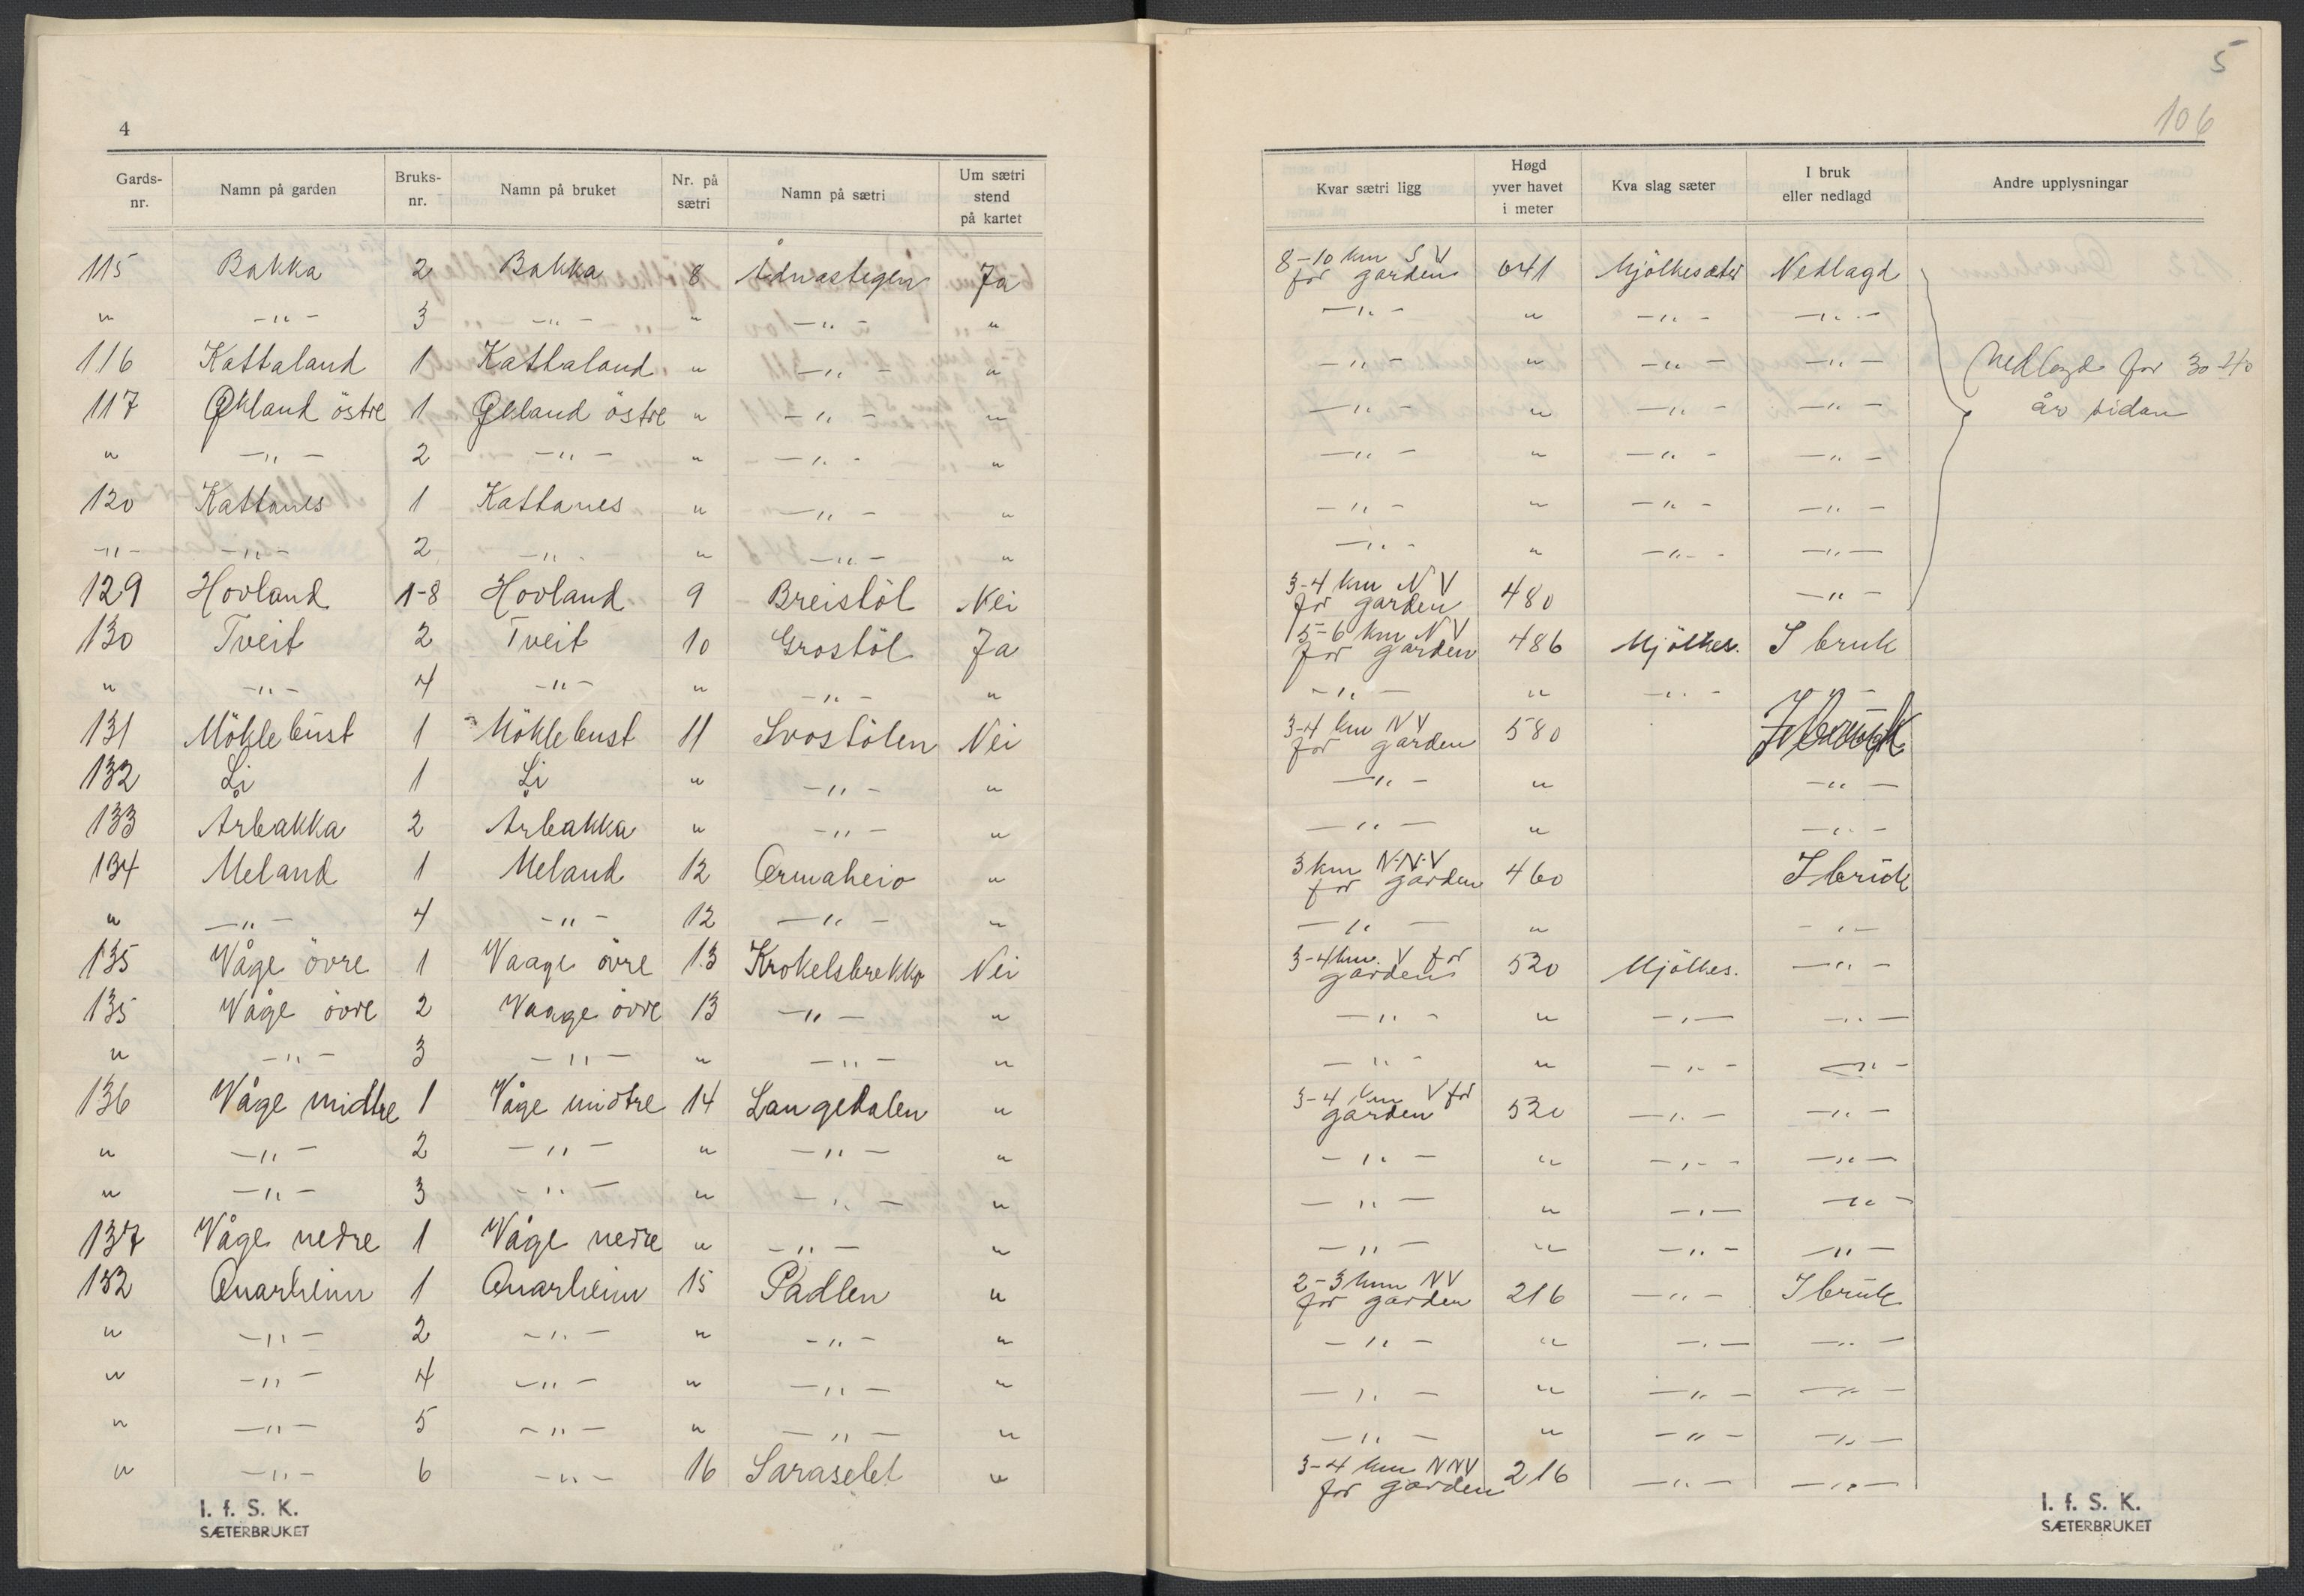 4
Gards-nr. Namn på garden Bruks-nr. Namn på bruket Nr. på sætri Namn på sætri Um sætri stend på kartet
115 Bakka 2 Bakka 8 Ådnastegen Ja
" -"- 3 -"- " -"- "
116 Kattaland 1 Kattaland " -"- "
117 Økland östre 1 Økland östre " -"- "
" -"- 2 -"- " -"- "
120 Kattanes 1 Kattanes " -"- "
-"- -"- 2 -"- " -"- "
129 Hovland 1-8 Hovland 9 Breistöl Nei
130 Tveit 2 Tveit 10 Grostöl Ja
" -"- 4 -"- " -"- "
131 Möklebust 1 Möklebust 11 Svostölen Nei
132 Li 1 Li " -"- "
133 Årbakka 2 Årbakka " -"- "
134 Meland 1 Meland 12 Ormaheio "
" -"- 4 -"- 12 -"- "
135 Våge övre 1 Vaage övre 13 Krokelsbrekko Nei
135 Våge övre 2 Vaage övre 13 -"- "
" -"- 3 -"- " -"- "
136 Våge midtre 1 Våge midtre 14 Langedalen "
" -"- 2 -"- " -"- "
" -"- 3 -"- " -"- "
137 Våge nedre 1 Våge nedre " -"- "
132 Onarheim 1 Onarheim 15 Padlen "
" -"- 2 -"- " -"- "
" -"- 4 -"- " -"- "
" -"- 5 -"- " -"- "
" -"- 6 -"- 16 Saraselet "
I. f. S. K.
SÆTERBRUKET
5
106
Kvar sætri ligg Høgd yver havet i meter Kva slag sæter I bruk eller nedlagd Andre upplysningar
8-10 km S V
for garden 641 Mjölkesæter Nedlagd
-"- " -"- -"-
-"- " -"- -"- Nedlagde for 30-40
-"- " -"- -"- år sidan
-"- " -"- -"-
-"- " -"- -"-
-"- " -"- -"-
3-4 km N V
for garden 480 -"-
5-6 km N V
for garden 486 Mjölkes. I bruk
-"- " -"- -"-
3-4 km N V
for garden 580
-"- " -"-
-"- " -"-
3 km N.N.V
for garden 460 I bruk
-"- " -"-
3-4 km. V for
garden 520 Mjölkes. -"-
-"- " -"- -"-
-"- " -"- -"-
3-4 km V for
garden 520 -"- -"-
-"- " -"- -"-
-"- " -"- -"-
-"- " -"- -"-
2-3 km NV
for garden 216 -"- I bruk
-"- " -"- -"-
-"- " -"- -"-
-"- " -"- -"-
3-4 km NNV
for garden 216 -"- -"-
I. f. S. K.
SÆTERBRUKET